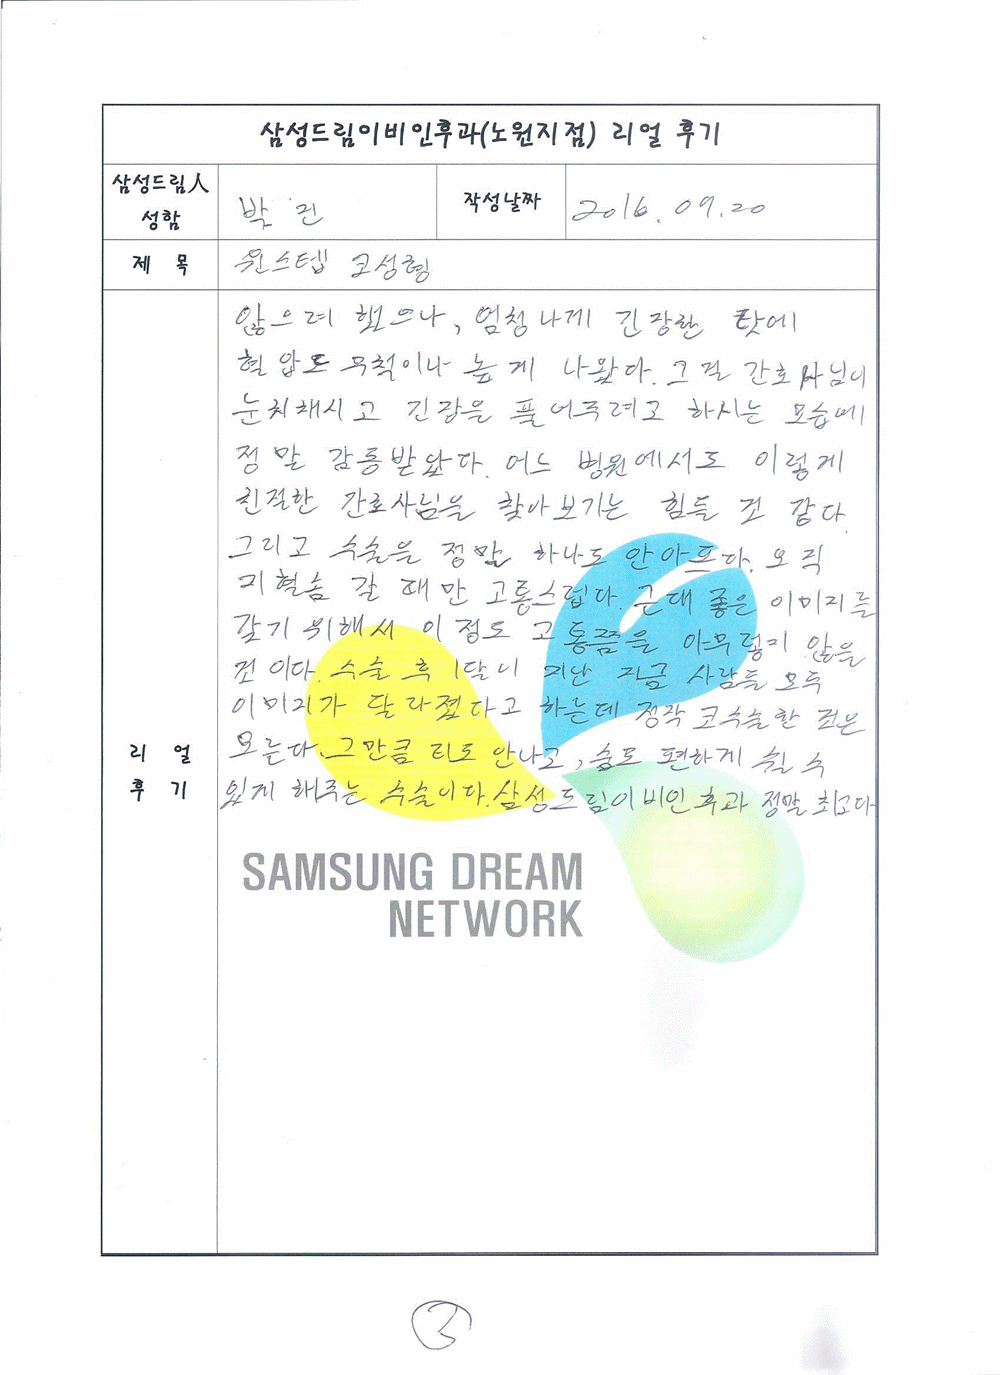 삼성드림이비인후과(노원지점) 리얼 후기
삼성드림人 성함
박 진
작성날짜
2016.09.20
제 목
원스텝 코성형
리 얼 후 기
않으려 했으나, 엄청나게 긴장한 탓에
혈압도 무척이나 높게 나왔다. 그걸 간호사님이
눈치채시고 긴장을 풀어주려고 하시는 모습에
정말 감동받았다. 어느 병원에서도 이렇게
친절한 간호사님을 찾아보기는 힘들 것 같다.
그리고 수술은 정말 하나도 안아프다. 오직
지혈솜 갈 때만 고통스럽다. 근데 좋은 이미지를
갖기 위해서 이 정도 고통쯤은 아무렇지 않을
것이다. 수술 후 1달이 지난 지금 사람들 모두
이미지가 달라졌다고 하는데 정작 코수술한 것은
모른다. 그만큼 티도 안나고, 숨도 편하게 쉴 수
있게 해주는 수술이다. 삼성드림이비인후과 정말 최고다
SAMSUNG DREAM
NETWORK
3